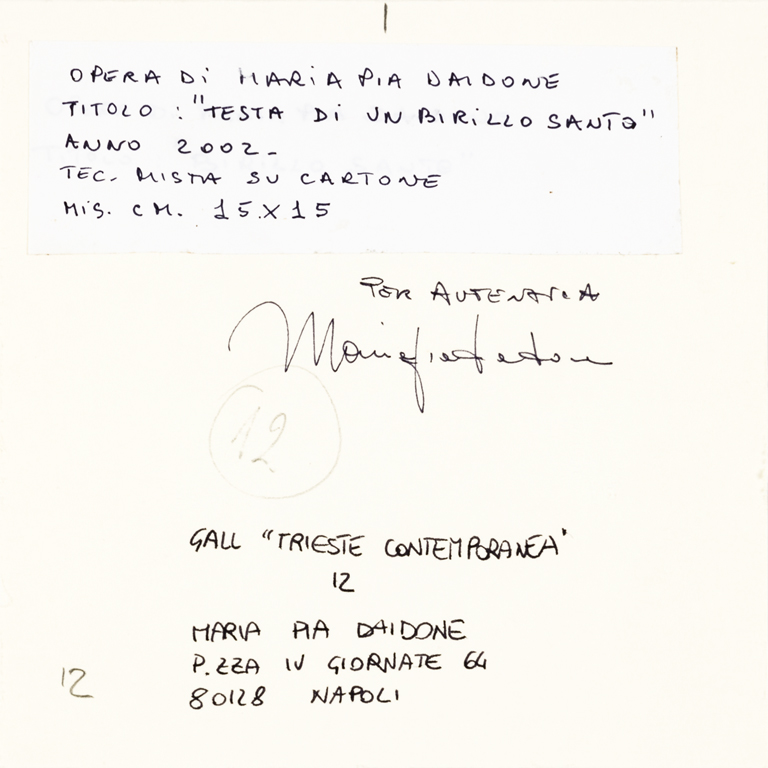 OPERA Di MARiA PiA DAIDONE
TITOLO : "TESTA Di UN BiRiLLO SANTO"
ANNO 2002-
TEC. MISTA SU CARTONE
MiS. CM. 15 X 15
PER AUTENTICA
Mariapia Daidone
12
GALL "TRIESTE CONTEMPORANEA"
12
MARIA PIA DAIDONE
P.ZZA IV GIORNATE 64
80128 NAPOLI
12